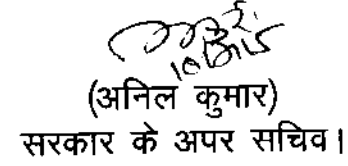 (अनिल कुमार)
सरकार के अपर सचिव।